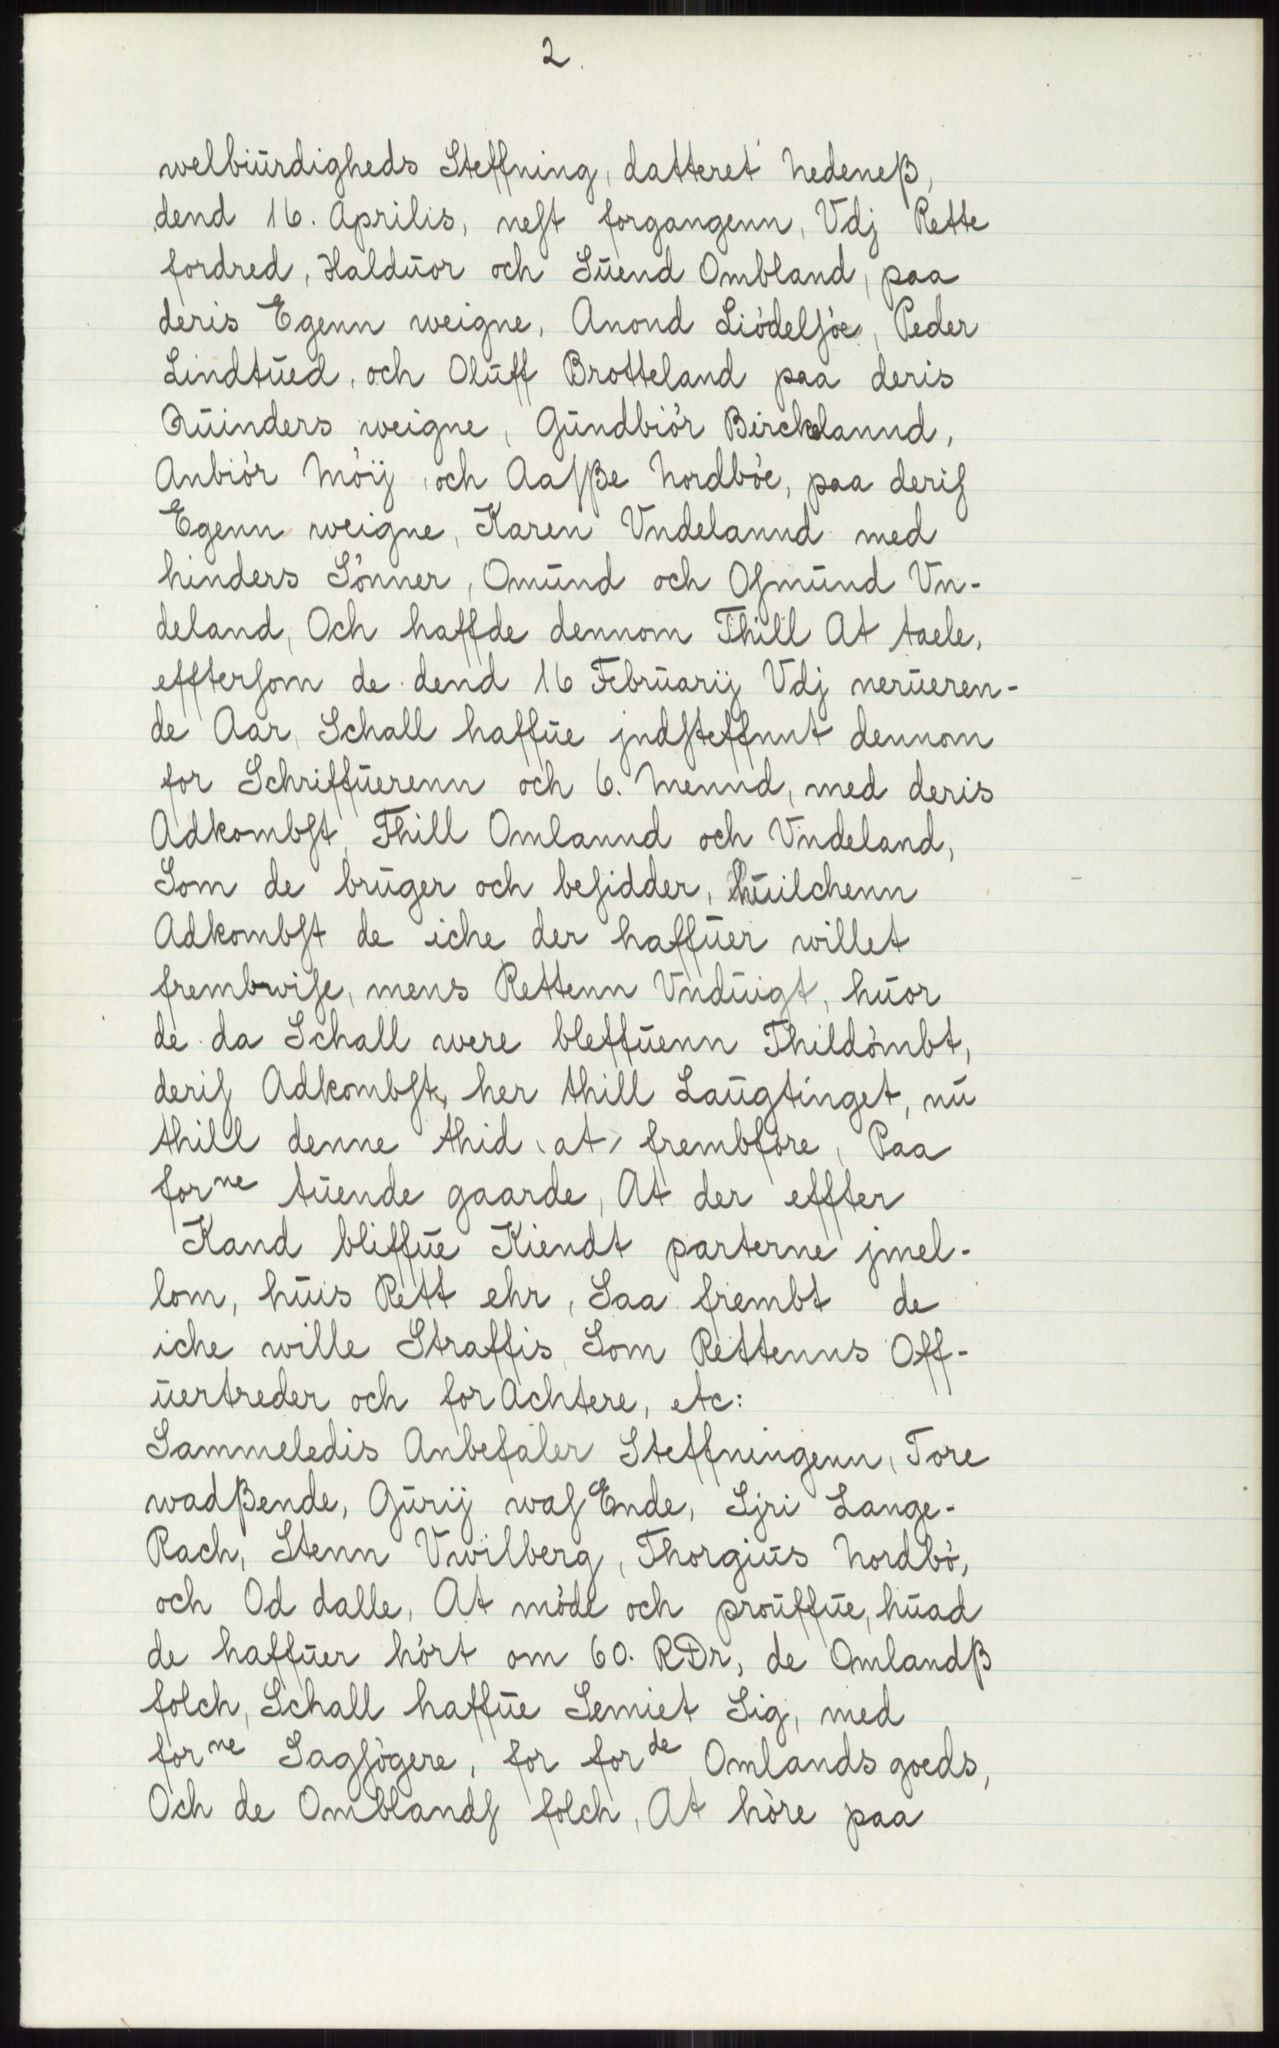 2.
welbiürdigheds Steffning, datteret Nedeneß,
dend 16. Aprilis, neſt forgangenn, Vdj Rette
fordred, Haldüor och Süend Ombland, paa
deris Egenn weigne, Anond Liödelſöe, Peder
Lindtüed, och Olüff Brotteland paa deris
Qüinders weigne, Gündbiör Birckelannd,
Anbiör Möÿ, och Aaſße Nordböe, paa deriſ
Egenn weigne, Karen Vndelannd med
hinders Sönner, Omünd och Oſmünd Vn-
deland, Och haffde dennom Thill At taele,
effterſom de dend 16 Februarÿ Vdj nerüeren-
de Aar, Schall haffüe jndſteffnnt dennom
for Schriffüerenn och 6. Mennd, med deris
Adkombſt, Thill Omlannd och Vndeland,
Som de brüger och beſidder, hüilchenn
Adkombſt de iche der haffüer willet
frembwiſe, mens Rettenn Vndüigt, hüor
de da Schall were bleffüenn Thildömbt,
deriſ Adkombſt, her thill Laügtinget, nü
thill denne thid at frembföre, Paa
forne tüende gaarde, At der effter
Kand bliffüe Kiendt parterne jmel-
lom, hüis Rett ehr, Saa frembt de
iche wille Straffis, Som Rettenns Off-
üertreder och forAchtere, etc:
Sammeledis Anbefaler Steffningenn, Tore
wadßende, Gürÿ waſ Ende, Sjri Lange-
Rach, Stenn Vwilberg, Thorgiüs Nordbö,
och Od dalle, At möde och proüffüe, hüad
de haffüer hört om 60. RDr, de Omlandß
folch, Schall haffüe Semiet Sig, med
forne Sagſögere, for forde Omlands goeds,
Och de Omblandſ folch, At höre paa